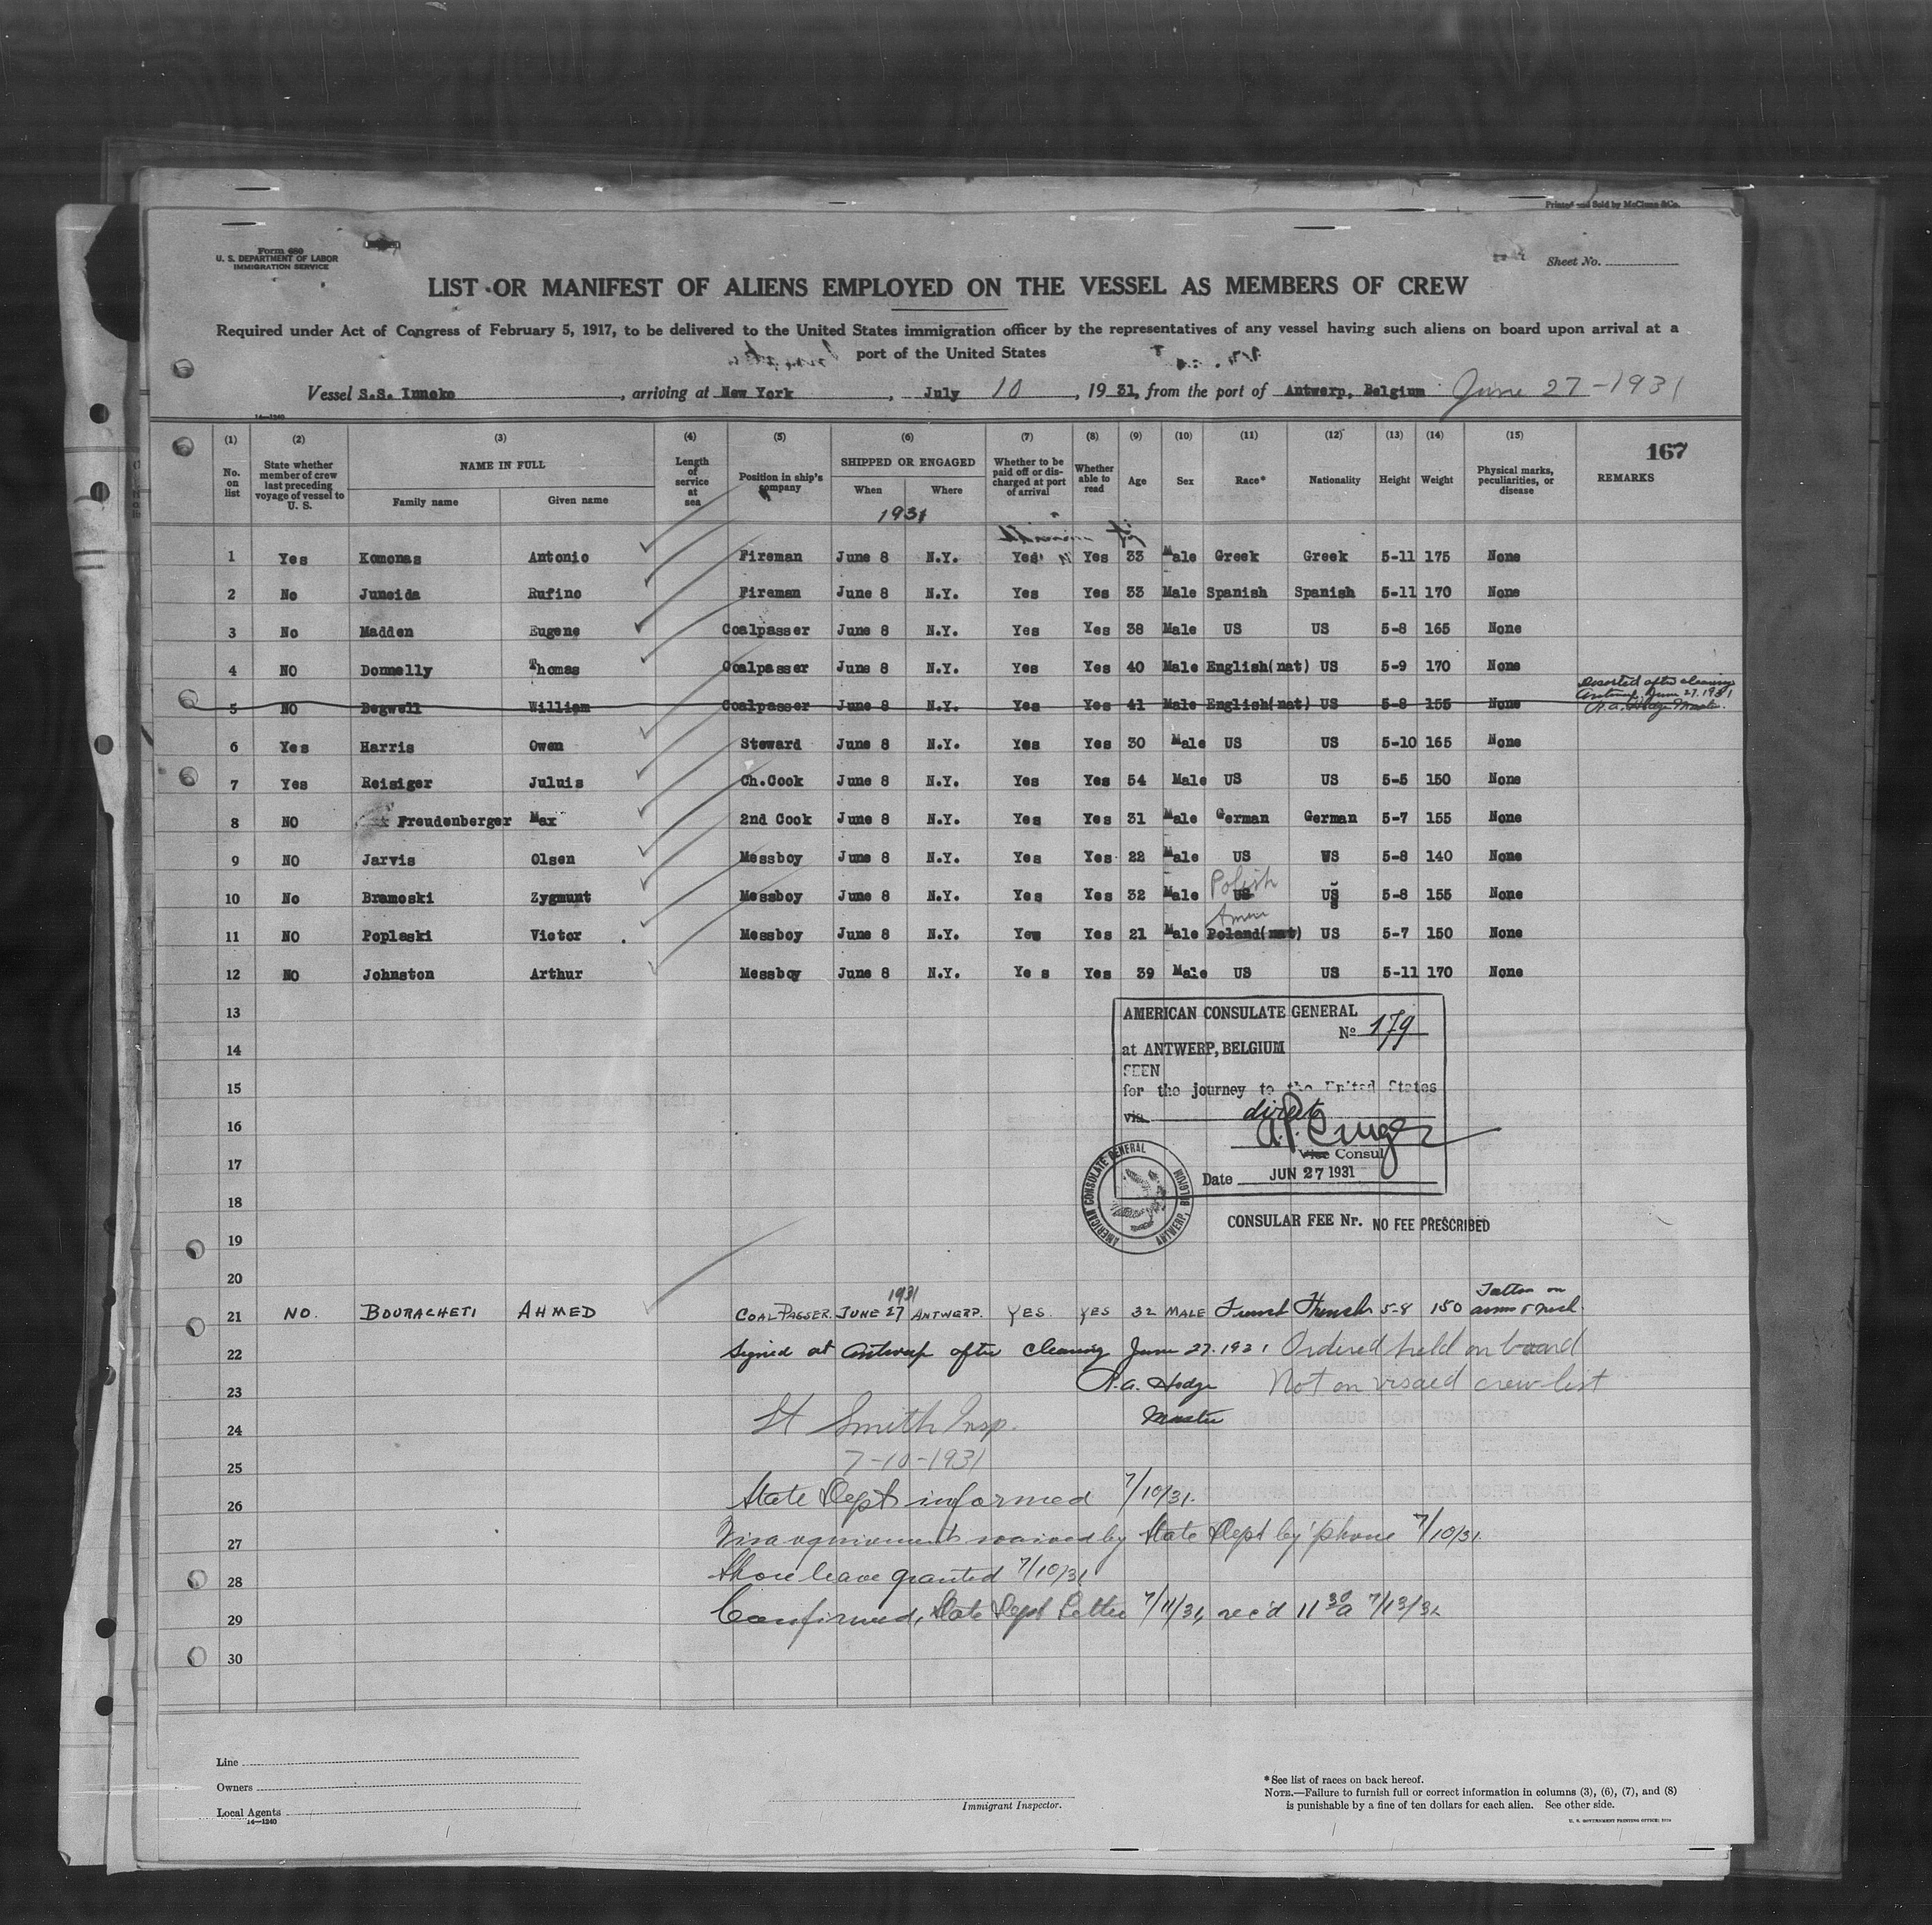 Printed and Sold by McClunn & Co.
Form 680
U. S. DEPARTMENT OF LABOR
IMMIGRATION SERVICE
Sheet No.
LIST OR MANIFEST OF ALIENS EMPLOYED ON THE VESSEL AS MEMBERS OF CREW
Required under Act of Congress of February 5, 1917, to be delivered to the United States immigration officer by the representatives of any vessel having such aliens on board upon arrival at a
port of the United States
Vessel S.S. Innoko, arriving at New York, July 10, 1931, from the port of Antwerp, Belgium June 27-1931
14—1240
(1) (2) (3) (4) (5) (6) (7) (8) (9) (10) (11) (12) (13) (14) (15)
167
No. on list
State whether member of crew last preceding voyage of vessel to U. S.
NAME IN FULL
Family name
Given name
Length of service at sea
Position in ship's company
SHIPPED OR ENGAGED
When
Where
1931
Whether to be paid off or discharged at port of arrival
Whether able to read
Age
Sex
Race*
Nationality
Height
Weight
Physical marks, peculiarities, or disease
REMARKS
1 Yes Komonas Antonio Fireman June 8 N.Y. Yes Yes 33 Male Greek Greek 5-11 175 None
2 No Juneida Rufino Fireman June 8 N.Y. Yes Yes 33 Male Spanish Spanish 5-11 170 None
3 No Madden Eugene Coalpasser June 8 N.Y. Yes Yes 38 Male US US 5-8 165 None
4 NO Donnelly Thomas Coalpasser June 8 N.Y. Yes Yes 40 Male English(nat) US 5-9 170 None
5 NO Begwell William Coalpasser June 8 N.Y. Yes Yes 41 Male English(nat) US 5-8 155 None
Deserted after clearing
Antwerp, June 27, 1931
R.A. Hodge Master.
6 Yes Harris Owen Steward June 8 N.Y. Yes Yes 30 Male US US 5-10 165 None
7 Yes Reisiger Juluis Ch.Cook June 8 N.Y. Yes Yes 54 Male US US 5-5 150 None
8 NO Freudenberger Max 2nd Cook June 8 N.Y. Yes Yes 31 Male German German 5-7 155 None
9 NO Jarvis Olsen Messboy June 8 N.Y. Yes Yes 22 Male US US 5-8 140 None
Polish
10 No Bramoski Zygmunt Messboy June 8 N.Y. Yes Yes 32 Male US US 5-8 155 None
Amer
11 NO Poplaski Victor Messboy June 8 N.Y. Yes Yes 21 Male Poland(nat) US 5-7 150 None
12 NO Johnston Arthur Messboy June 8 N.Y. Yes Yes 39 Male US US 5-11 170 None
13
14
15
16
17
18
19
20
AMERICAN CONSULATE GENERAL
No 179
at ANTWERP, BELGIUM
SEEN
for the journey to the United States
via direct
Vice Consul
Date JUN 27 1931
AMERICAN CONSULATE GENERAL ANTWERP, BELGIUM
CONSULAR FEE Nr. NO FEE PRESCRIBED
1931
21 NO. BOURACHETI AHMED COAL PASSER. JUNE 27 ANTWERP. YES. YES 32 MALE French French 5-8 150 Tattoo on arms & neck.
22 Signed at Antwerp after clearing June 27. 1931 Ordered held on board
23 R.A. Hodge Not on visaed crew list
Master
24 St Smith Insp.
25 7-10-1931
26 State Dept informed 7/10/31.
27 Visa requirements waived by State Dept by 'phone 7/10/31.
28 Shore leave granted 7/10/31
29 Confirmed, State Dept Letter 7/11/31, rec'd 11 30 a 7/13/31.
30
Line
Owners
Local Agents
14—1240
Immigrant Inspector.
*See list of races on back hereof.
NOTE.—Failure to furnish full or correct information in columns (3), (6), (7), and (8)
is punishable by a fine of ten dollars for each alien. See other side.
U. S. GOVERNMENT PRINTING OFFICE: